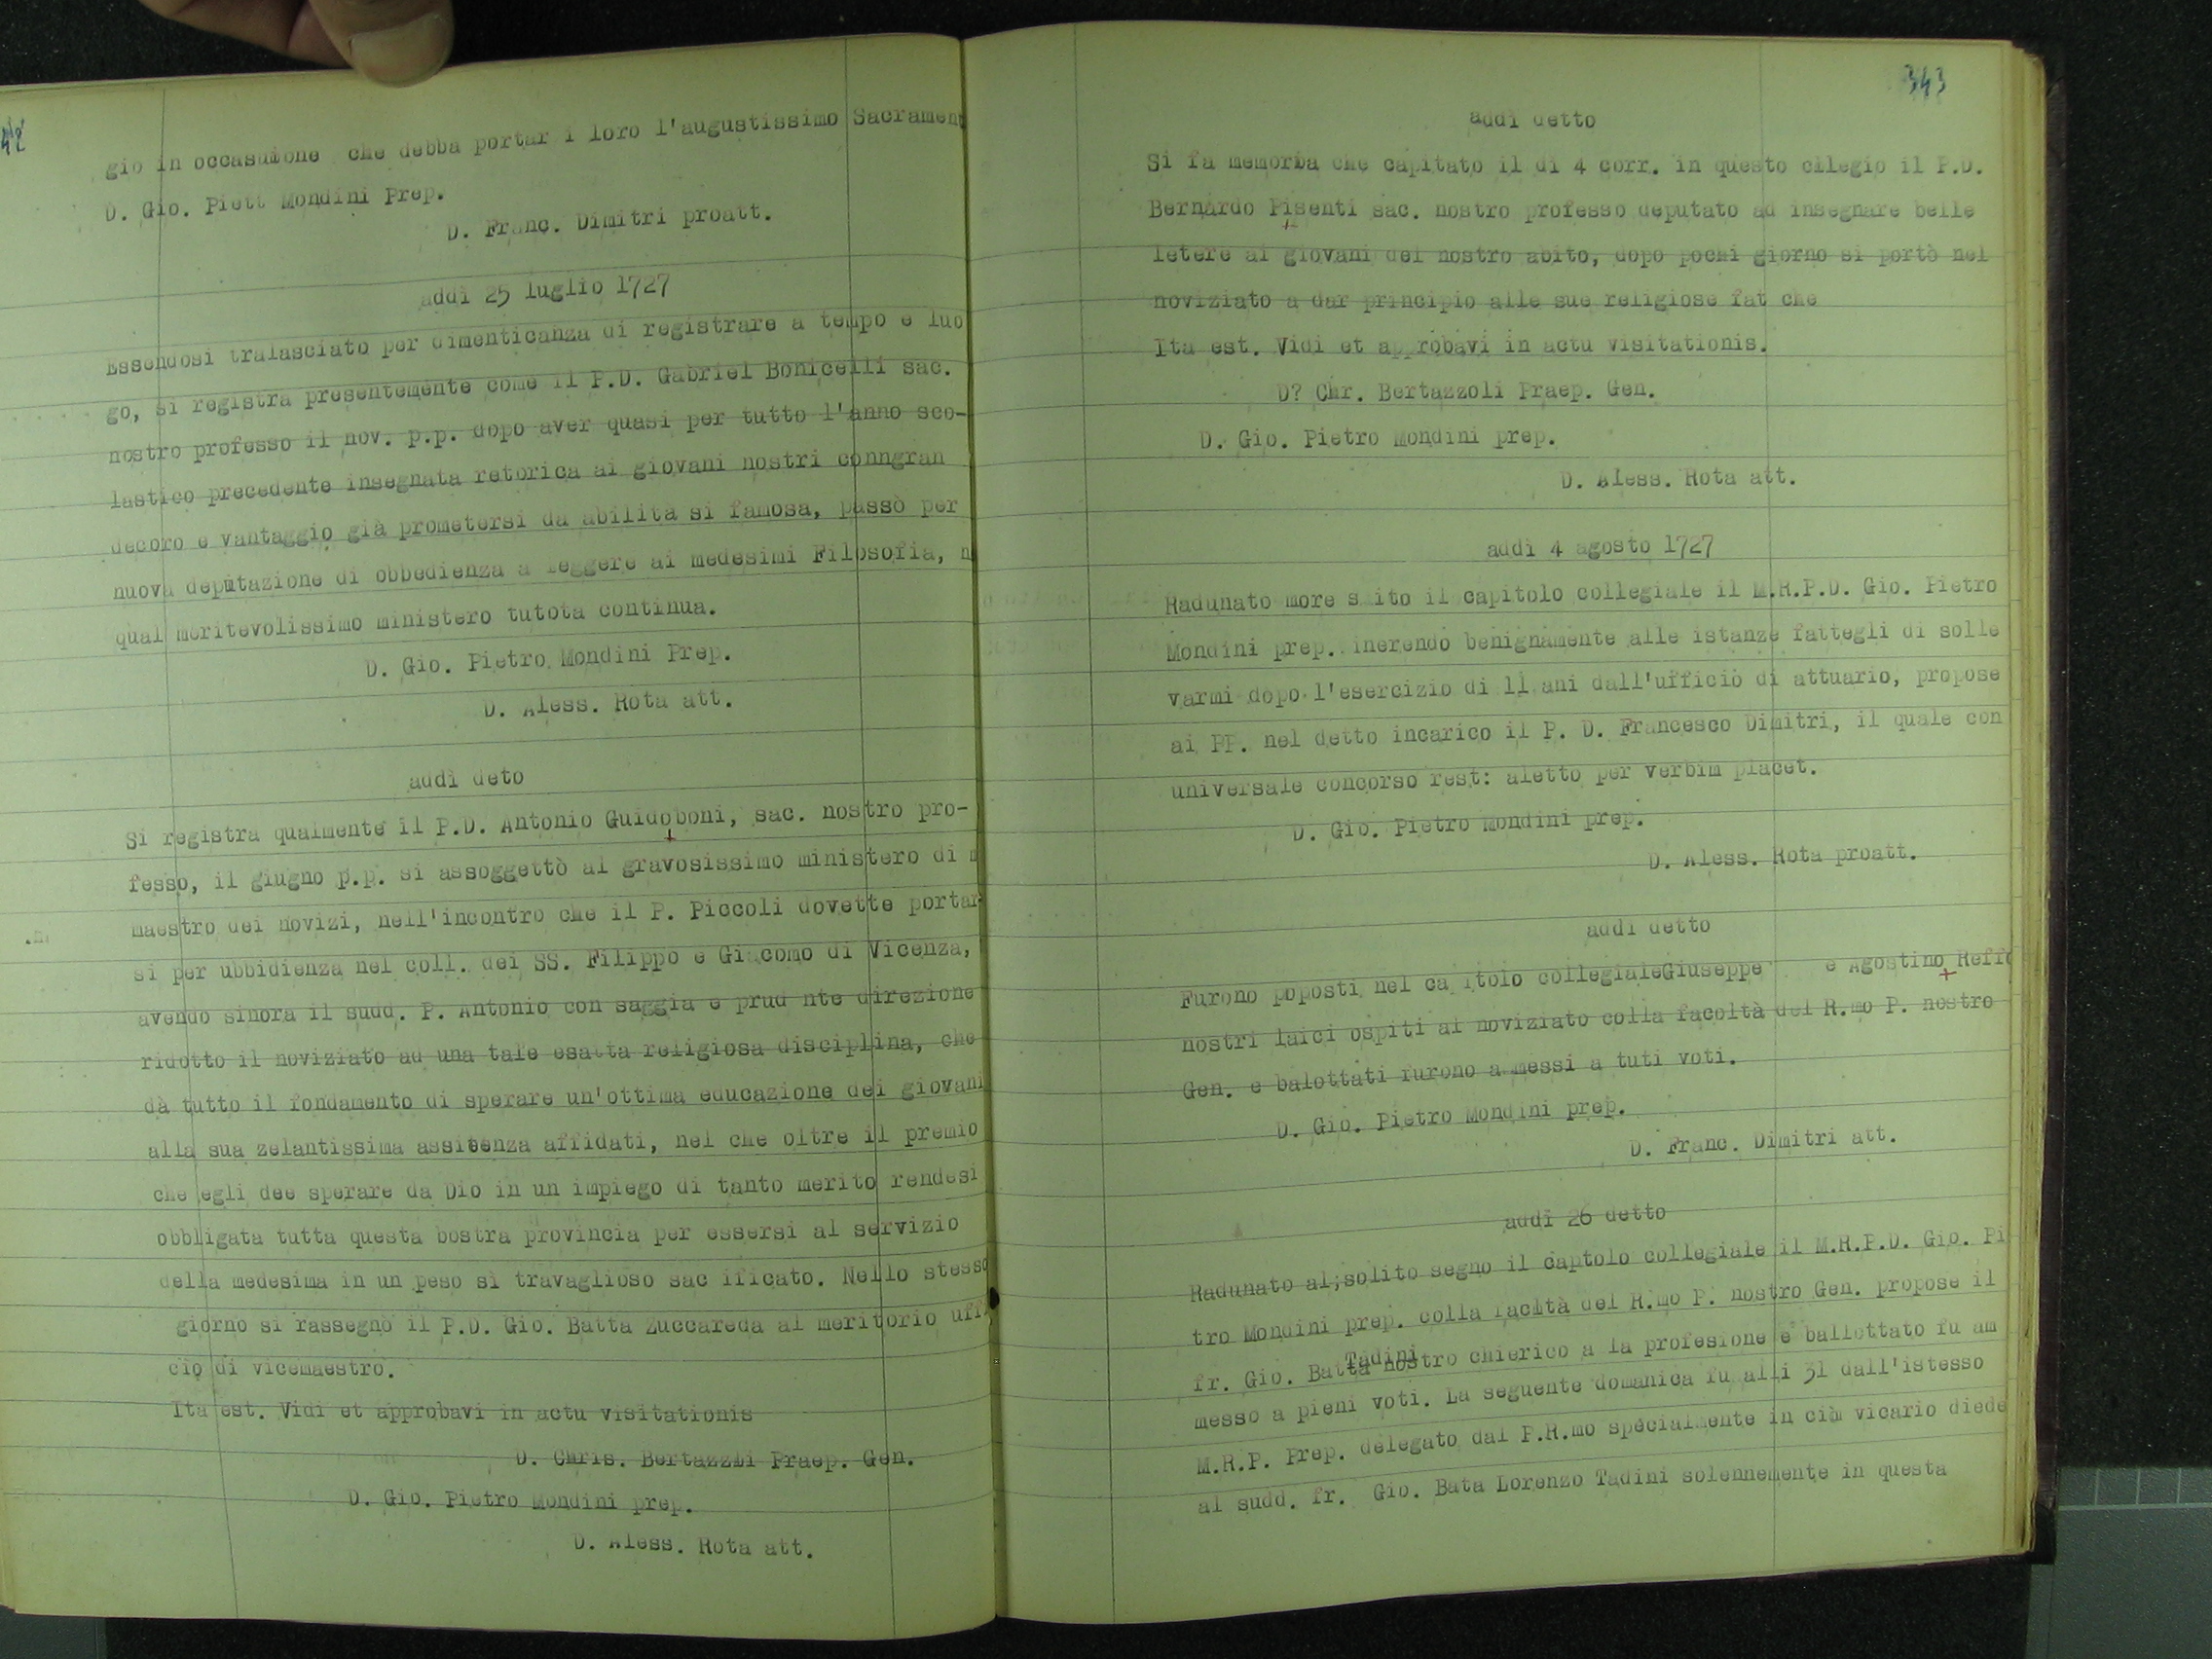 42
gio in occasuione che debba portar i loro l'augustissimo Sacramen
D. Gio. Piett Mondini Prep.
D. Franc. Dimitri proatt.
addì 25 luglio 1727
Essendosi tralasciato per dimenticanza di registrare a tempo e luo
go, si registra presentemente come il P.D. Gabriel Bonicelli sac.
nostro professo il nov. p.p. dopo aver quasi per tutto l'anno sco-
lastico precedente insegnata retorica ai giovani nostri conngran
decoro e vantaggio già prometersi da abilità si famosa, passò per
nuova deputazione di obbedienza a leggere ai medesimi Filosofia, n
qual meritevolissimo ministero tutota continua.
D. Gio. Pietro Mondini Prep.
D. Aless. Rota att.
addì deto
Si registra qualmente il P.D. Antonio Guidoboni, sac. nostro pro-
fesso, il giugno p.p. si assoggettò al gravosissimo ministero di m
maestro dei novizi, nell'incontro che il P. Piccoli dovette portar
si per ubbidienza nel coll. dei SS. Filippo e Giacomo di Vicenza,
avendo sinora il sudd. P. Antonio con saggia e prud nte direzione
ridotto il noviziato ad una tale esatta religiosa disciplina, che
dà tutto il fondamento di sperare un'ottima educazione dei giovani
alla sua zelantissima assitenza affidati, nel che oltre il premio
che egli dee sperare da Dio in un impiego di tanto merito rendesi
obbligata tutta questa bostra provincia per essersi al servizio
della medesima in un peso sì travaglioso sac ificato. Nello stesso
giorno si rassegnò il P.D. Gio. Batta Zuccareda al meritorio uffi
cio di vicemaestro.
Ita est. Vidi et approbavi in actu visitationis
D. Chris. Bertazzli Praep. Gen.
D. Gio. Pietro Mondini prep.
D. Aless. Rota att.
343
addì detto
Si fa memoria che capitato il dì 4 corr. in questo cllegio il P.D.
Bernardo Pisenti sac. nostro professo deputato ad insegnare belle
letere ai giovani del nostro abito, dopo pochi giorno si portò nel
noviziato a dar principio alle sue religiose fat che
Ita est. Vidi et approbavi in actu visitationis.
D? Chr. Bertazzoli Praep. Gen.
D. Gio. Pietro Mondini prep.
D. Aless. Rota att.
addì 4 agosto 1727
Radunato more s ito il capitolo collegiale il M.R.P.D. Gio. Pietro
Mondini prep. inerendo benignamente alle istanze fattegli di solle
varmi dopo l'esercizio di 11 ani dall'ufficio di attuario, propose
ai PP. nel detto incarico il P. D. Francesco Dimitri, il quale con
universale concorso rest: aletto per verbim placet.
D. Gio. Pietro Mondini prep.
D. Aless. Rota proatt.
addì detto
Furono poposti nel ca itolo collegialeGiuseppe e Agostino Reffo
nostri laici ospiti al noviziato colla facoltà del R.mo P. nostro
Gen. e balottati furono a messi a tuti voti.
D. Gio. Pietro Mondini prep.
D. Franc. Dimitri att.
addì 26 detto
Radunato al;solito segno il captolo collegiale il M.R.P.D. Gio. Pi
tro Mondini prep. colla facltà del R.mo P. nostro Gen. propose il
fr. Gio. Batta Tadini nostro chierico a la profesione e ballottato fu am
messo a pieni voti. La seguente domanica fu alli 31 dall'istesso
M.R.P. Prep. delegato dal P.R.mo specialmente in ciò vicario diede
al sudd. fr. Gio. Bata Lorenzo Tadini solennemente in questa